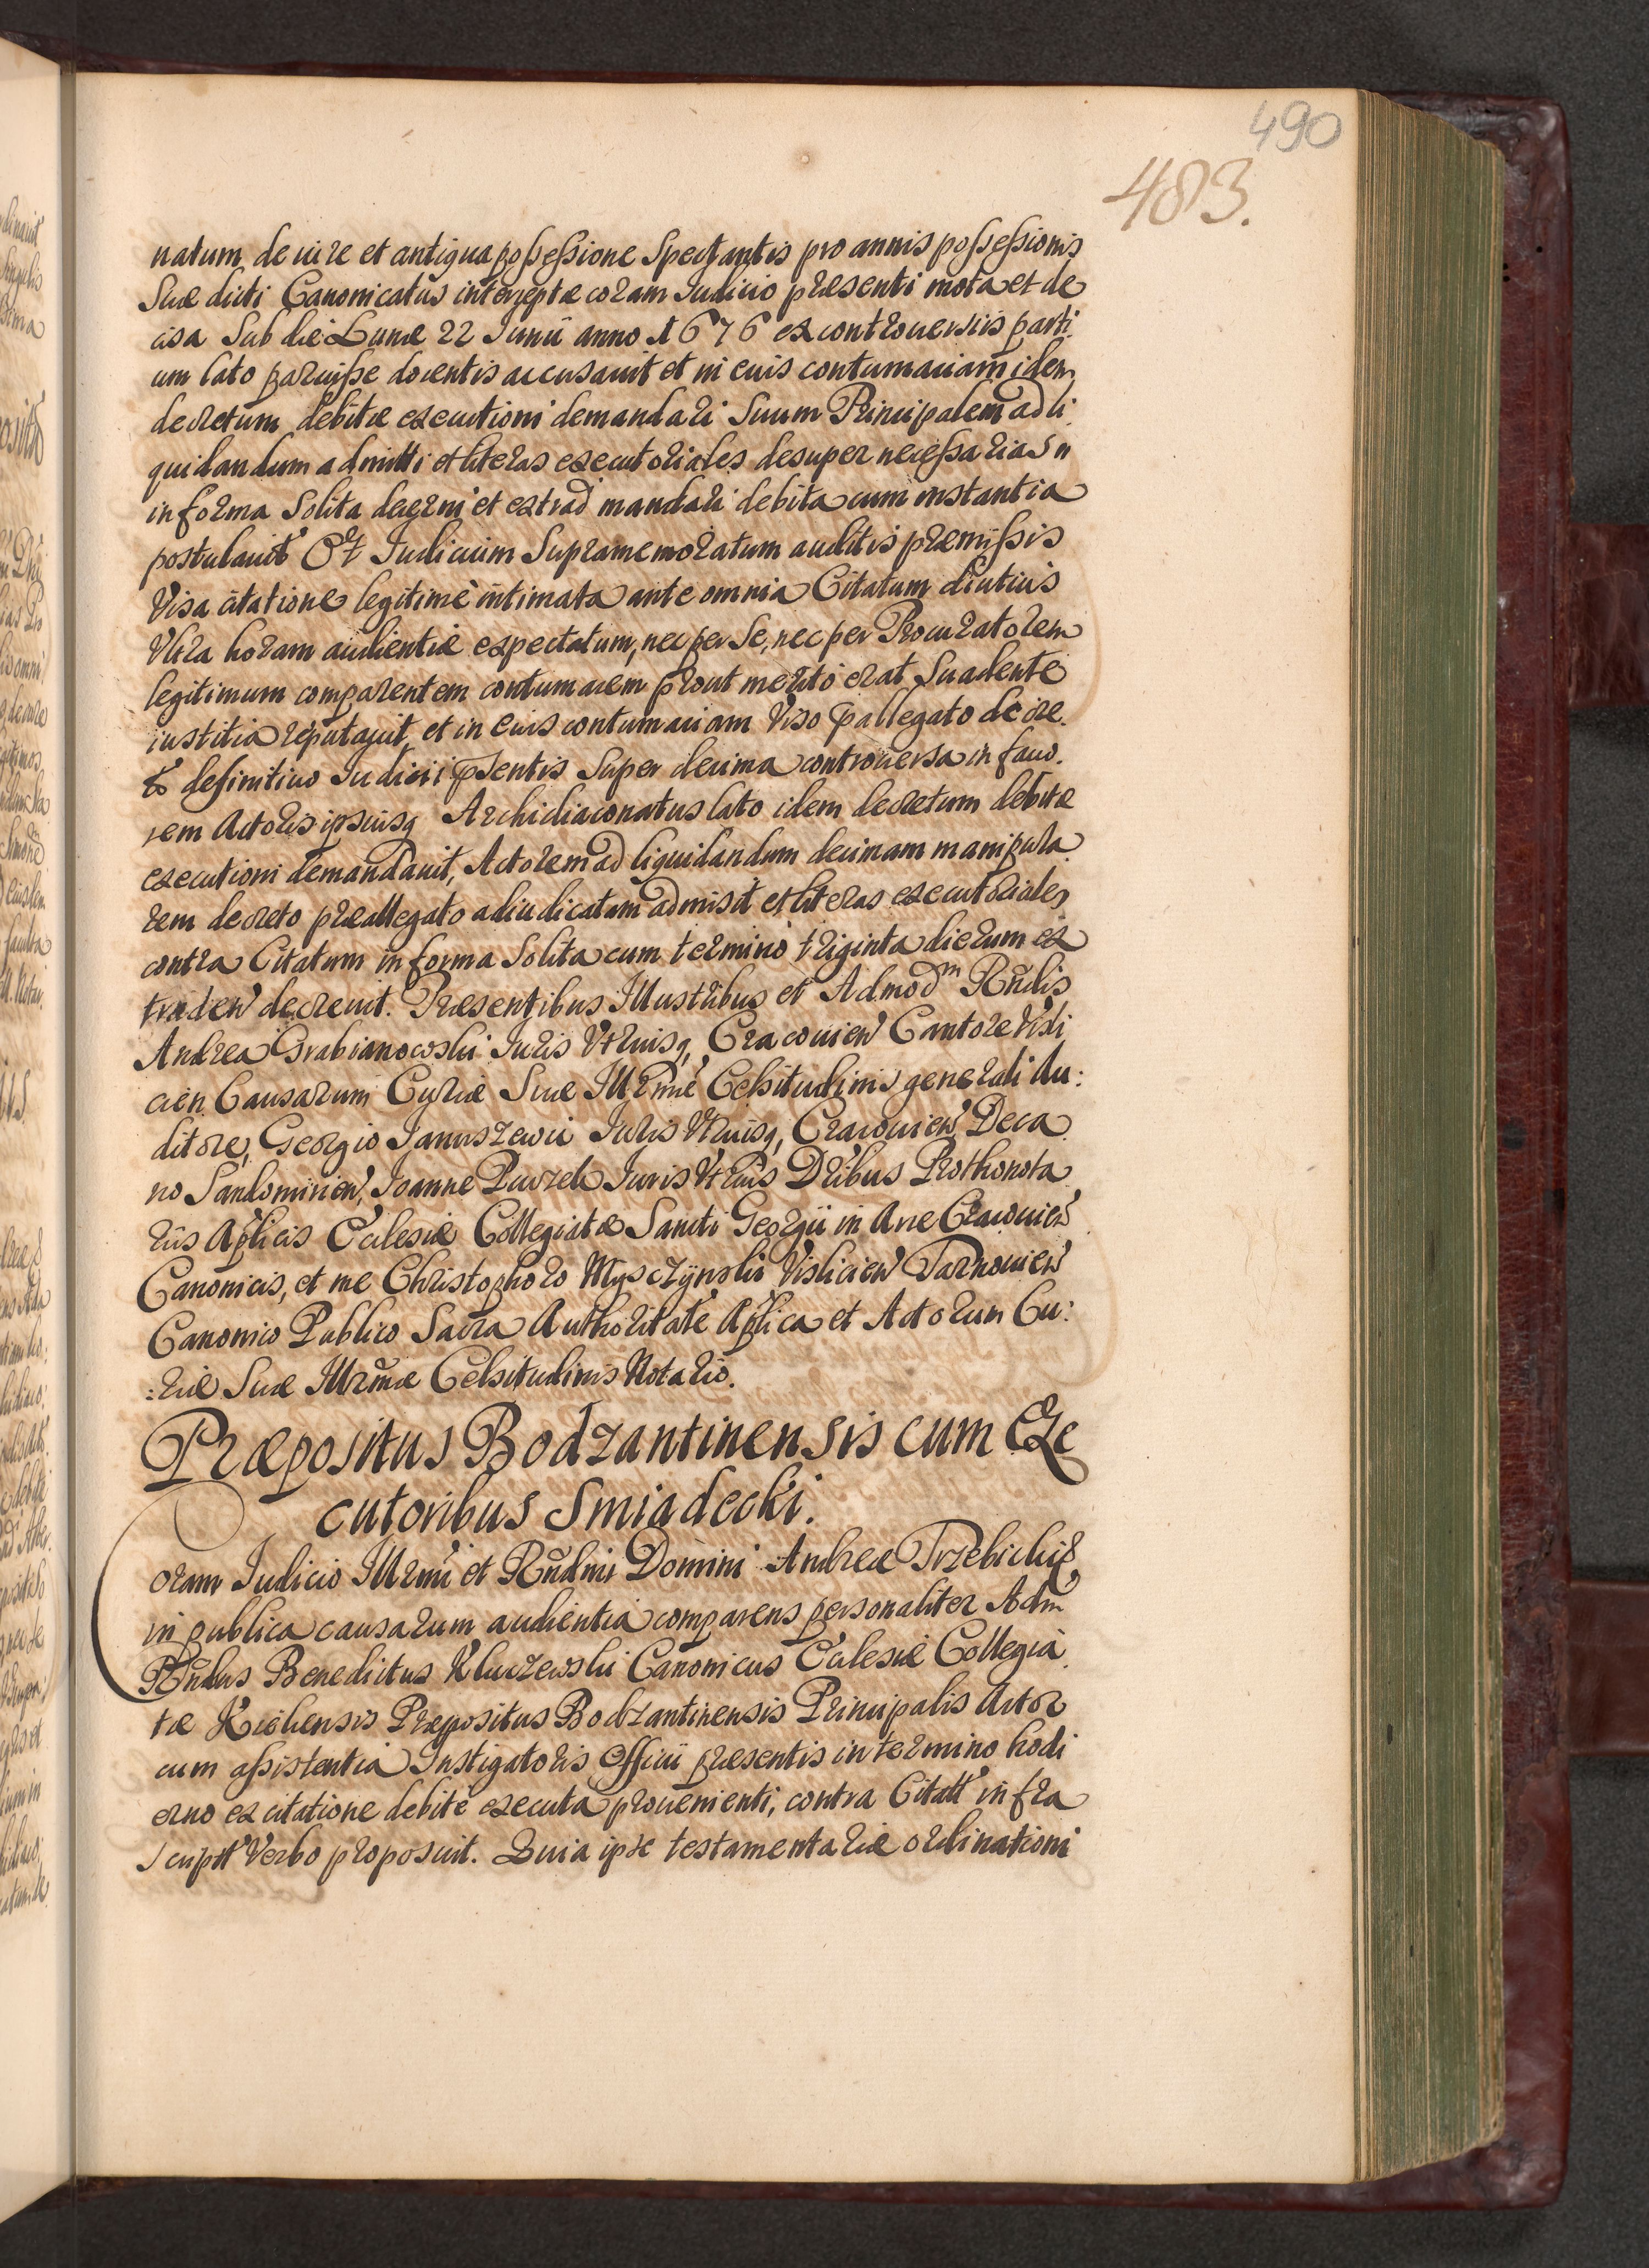 490
483.
natum de iure et antiqua possessione Spectantis pro annis possessionis
Suæ dicti Canonicatus interceptæ coram Iudicio præsenti mota et de
cisa Sub die Lunæ 22 Iunii anno 1676 ex controuersiis parti
um lato paruisse docentis accusauit et in eius contumaciam idem
decretum debitæ executioni demandari Suum Principalem ad li
quidandum admitti et literas executoriales desuper necessarias
in forma Solita decerni et extrad mandari debita cum instantia
postulauit Et Iudicium Supramemoratum auditis præmissis
Visa citatione legitime intimata ante omnia Citatum diutius
Vltra horam audientiæ expectatum, nec per Se, nec per Procuratorem
legitimum comparentem contumacem prout merito erat Suadente
iustitia reputauit, et in eius contumaciam Viso pallegato decre
to definitiuo Iudicii psentis Super decima controuersa in fauo.
rem Actoris ipsiusq Archidiaconatus lato idem decretum debitæ
executioni demandauit, Actorem ad liquidandum decimam manipula
rem decreto præallegato adiudicatam admisit et literas executoriales
contra Citatum in forma Solita cum termino triginta dierum ex
traden decreuit. Præsentibus Illustribus et Admodm Rndis
Andrea Grabianowski Iuris Vtriusq, Cracouien Cantore Visli
cien Causarum Curiæ Suæ Illrmæ Celsitudinis generali Au:
ditore, Georgio Januszewic Iuris Vtriusq, Cracouien Deca
no Sandomirien, Joanne Puczek Iuris Vtrius Dribus Prothonota
riis Aplicis Ecclesiæ Collegiatæ Sancti Georgii in Arce Cracouien
Canonicis, et me Christophoro Mysczynski Visliciен Tarnouien
Canonico Publico Sacra Authoritate Aplica et Actorum Cu:
:riæ Suæ Illrmæ Celsitudinis Notario.
Præpositus Bodzantinensis cum Exe
cutoribus Smiadecki.
Coram Iudicio Illrmi et Rndmi Domini Andreæ Trzebicki &
in publica causarum audientia comparens personaliter Adm
Rndus Benedictus Kluczewski Canonicus Ecclesiæ Collegia
tæ Kielcensis Præpositus Bodzantinensis Principalis Actor
cum assistentia Instigatoris Officii præsentis in termino hodi
erno ex citatione debite executa prouenienti, contra Citatt infra
scriptt Verbo proposuit. Quia ipse testamentariæ ordinationi